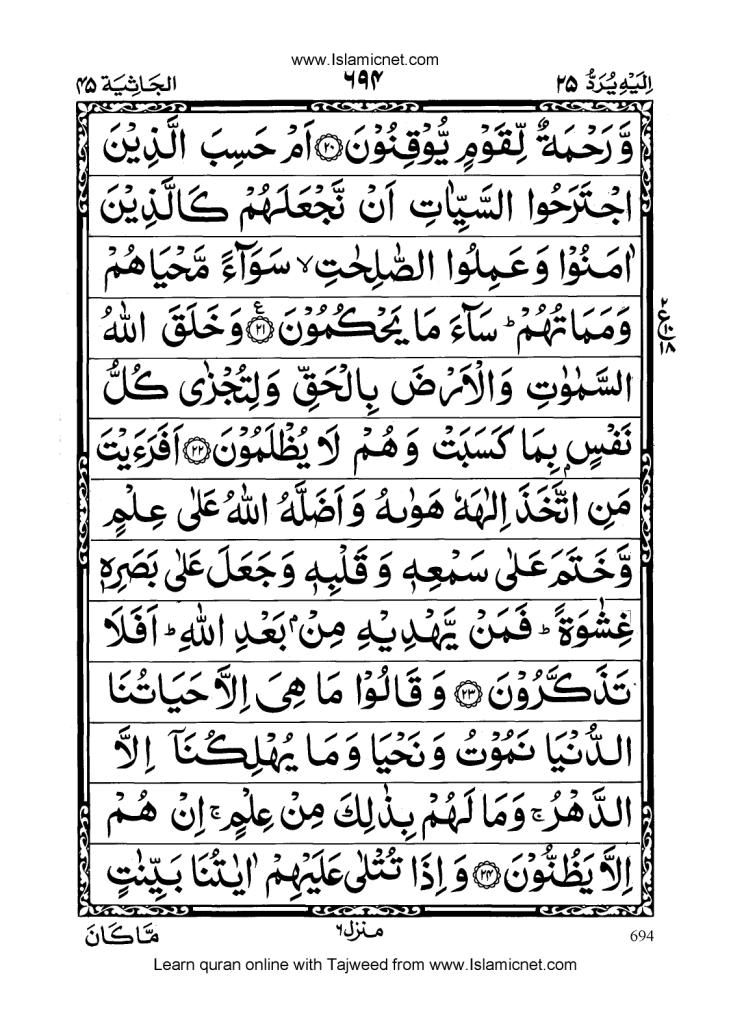 www.Islamicnet.com
اِلَیْهِ یُرَدُّ ۲۵
۶۹۴
الجَاثِیَة ۴۵
وَّرَحْمَةٌ لِّقَوْمٍ یُّوْقِنُوْنَ ﴿۲۰﴾ اَمْ حَسِبَ الَّذِیْنَ
اجْتَرَحُوا السَّیِّاٰتِ اَنْ نَّجْعَلَهُمْ كَالَّذِیْنَ
اٰمَنُوْا وَعَمِلُوا الصّٰلِحٰتِ ۙ سَوَآءً مَّحْیَاهُمْ
وَمَمَاتُهُمْ ؕ سَآءَ مَا یَحْكُمُوْنَ ﴿۲۱﴾ ع وَخَلَقَ اللّٰهُ
ع
۲
۱۰
۱۸
السَّمٰوٰتِ وَالْاَرْضَ بِالْحَقِّ وَلِتُجْزٰى كُلُّ
نَفْسٍۭ بِمَا كَسَبَتْ وَهُمْ لَا یُظْلَمُوْنَ ﴿۲۲﴾ اَفَرَءَیْتَ
مَنِ اتَّخَذَ اِلٰهَهٗ هَوٰىهُ وَاَضَلَّهُ اللّٰهُ عَلٰى عِلْمٍ
وَّخَتَمَ عَلٰى سَمْعِهٖ وَقَلْبِهٖ وَجَعَلَ عَلٰى بَصَرِهٖ
غِشٰوَةً ؕ فَمَنْ یَّهْدِیْهِ مِنْۢ بَعْدِ اللّٰهِ ؕ اَفَلَا
تَذَكَّرُوْنَ ﴿۲۳﴾ وَقَالُوْا مَا هِیَ اِلَّا حَیَاتُنَا
الدُّنْیَا نَمُوْتُ وَنَحْیَا وَمَا یُهْلِكُنَاۤ اِلَّا
الدَّهْرُ ۚ وَمَا لَهُمْ بِذٰلِكَ مِنْ عِلْمٍ ۚ اِنْ هُمْ
اِلَّا یَظُنُّوْنَ ﴿۲۴﴾ وَاِذَا تُتْلٰى عَلَیْهِمْ اٰیٰتُنَا بَیِّنٰتٍ
694
منزل ۶
مَّا كَانَ
Learn quran online with Tajweed from www.Islamicnet.com